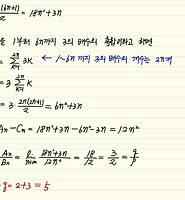 (6n+1)
2 = 18n²+3n
을 1부터 6n까지 3의 배수의 총합이라고 하면
= 2n Σ k=1 3k ← 1~6n까지 3의 배수의 개수는 2n개
= 3 2n Σ k=1 k
= 3· 2n(2n+1) / 2 = 6n²+3n
An - Cn = 18n²+3n-6n²-3n = 12n²
An / Bn = 18n²+3n / 12n² = 18 / 12 = 3 / 2 =
= 2+3 = 5